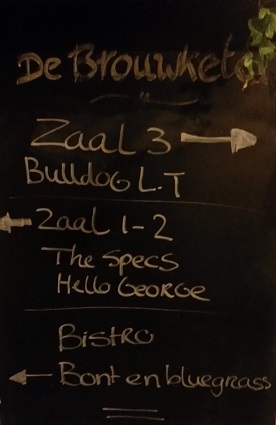 De Brouwketel
Zaal 3
Bulldog L.T
Zaal 1-2
The Specs
Hello George
Bistro
Bont en bluegrass